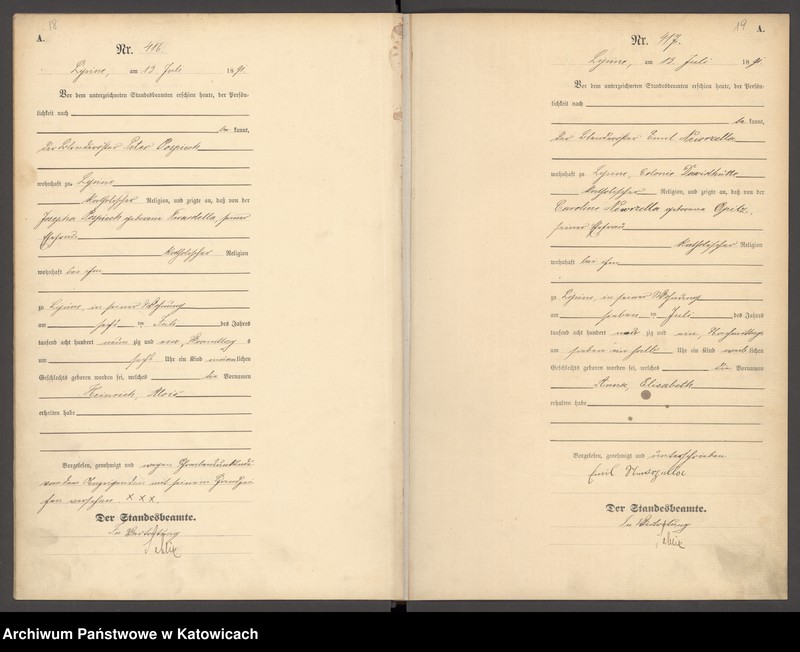 18
A.
Nr. 416
Lipine, am 13 Juli 1891.
Vor dem unterzeichneten Standesbeamten erschien heute, der Persön-
lichkeit nach
be kannt,
der Peter
wohnhaft zu Lipine
katholischer Religion, und zeigte an, daß von der
Josepha geborene seiner
Ehefrau
katholischer Religion
wohnhaft bei ihm
zu Lipine, in seiner Wohnung
am ten Juli des Jahres
tausend acht hundert neun zig und eins, Vormittag s
um Uhr ein Kind männlichen
Geschlechts geboren worden sei, welches die Vornamen
Heinrich, Alois
erhalten habe
Vorgelesen, genehmigt und wegen Schreibensunkunde
von dem Anzeigenden mit seinem Handzei
chen versehen. x x x.
Der Standesbeamte.
In Vertretung
19
A.
Nr. 417.
Lipine, am 13. Juli 1891.
Vor dem unterzeichneten Standesbeamten erschien heute, der Persön-
lichkeit nach
be kannt,
der Emil
wohnhaft zu Lipine, Colonie Davidhütte
katholischer Religion, und zeigte an, daß von der
Caroline geborene Opitz,
seiner Ehefrau
katholischer Religion
wohnhaft bei ihm
zu Lipine, in seiner Wohnung
am sieben ten Juli des Jahres
tausend acht hundert neun zig und eins, Nachmittags
um sieben ein halb Uhr ein Kind weib lichen
Geschlechts geboren worden sei, welches die Vornamen
Anna, Elisabeth
erhalten habe
Vorgelesen, genehmigt und unterschrieben
Emil
Der Standesbeamte.
In Vertretung
Archiwum Państwowe w Katowicach